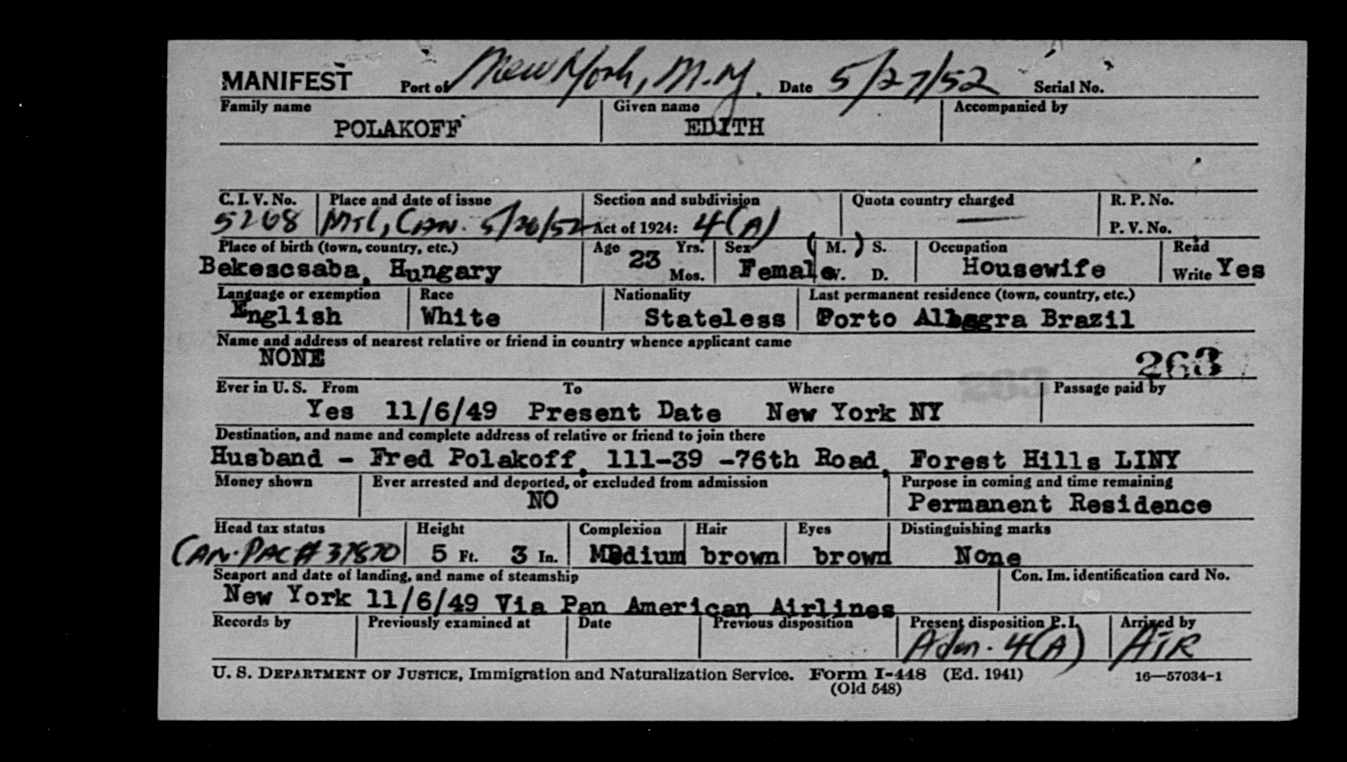 MANIFEST Port of New York, N.Y. Date 5/27/52 Serial No.
Family name Given name Accompanied by
POLAKOFF EDITH
C. I. V. No. Place and date of issue Section and subdivision Quota country charged R. P. No.
5268 Mtl, Can. 5/20/52 Act of 1924: 4(A) — P. V. No.
Place of birth (town, country, etc.) Age 23 Yrs. Sex (M.) S. Occupation Read
Bekescsaba, Hungary Mos. Female W. D. Housewife Write Yes
Language or exemption Race Nationality Last permanent residence (town, country, etc.)
English White Stateless Porto Alhegra Brazil
Name and address of nearest relative or friend in country whence applicant came
NONE 263
Ever in U. S. From To Where Passage paid by
Yes 11/6/49 Present Date New York NY
Destination, and name and complete address of relative or friend to join there
Husband - Fred Polakoff, 111-39 -76th Road, Forest Hills LINY
Money shown Ever arrested and deported, or excluded from admission Purpose in coming and time remaining
NO Permanent Residence
Head tax status Height Complexion Hair Eyes Distinguishing marks
CAN. PAC # 37870 5 Ft. 3 In. Medium brown brown None
Seaport and date of landing, and name of steamship Con. Im. identification card No.
New York 11/6/49 Via Pan American Airlines
Records by Previously examined at Date Previous disposition Present disposition P.I. Arrived by
Adm. 4(A) AIR
U. S. DEPARTMENT OF JUSTICE, Immigration and Naturalization Service. Form I-448 (Ed. 1941) 16—57034-1
(Old 548)